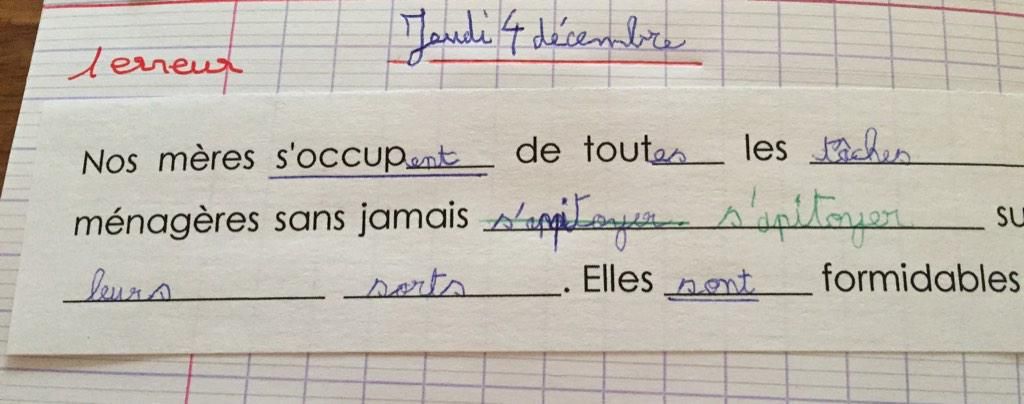 Jeudi 4 décembre
1 erreur
Nos mères s'occupent de toutes les tâches
ménagères sans jamais s'appitoyer s'apitoyer su
leurs sorts. Elles sont formidables